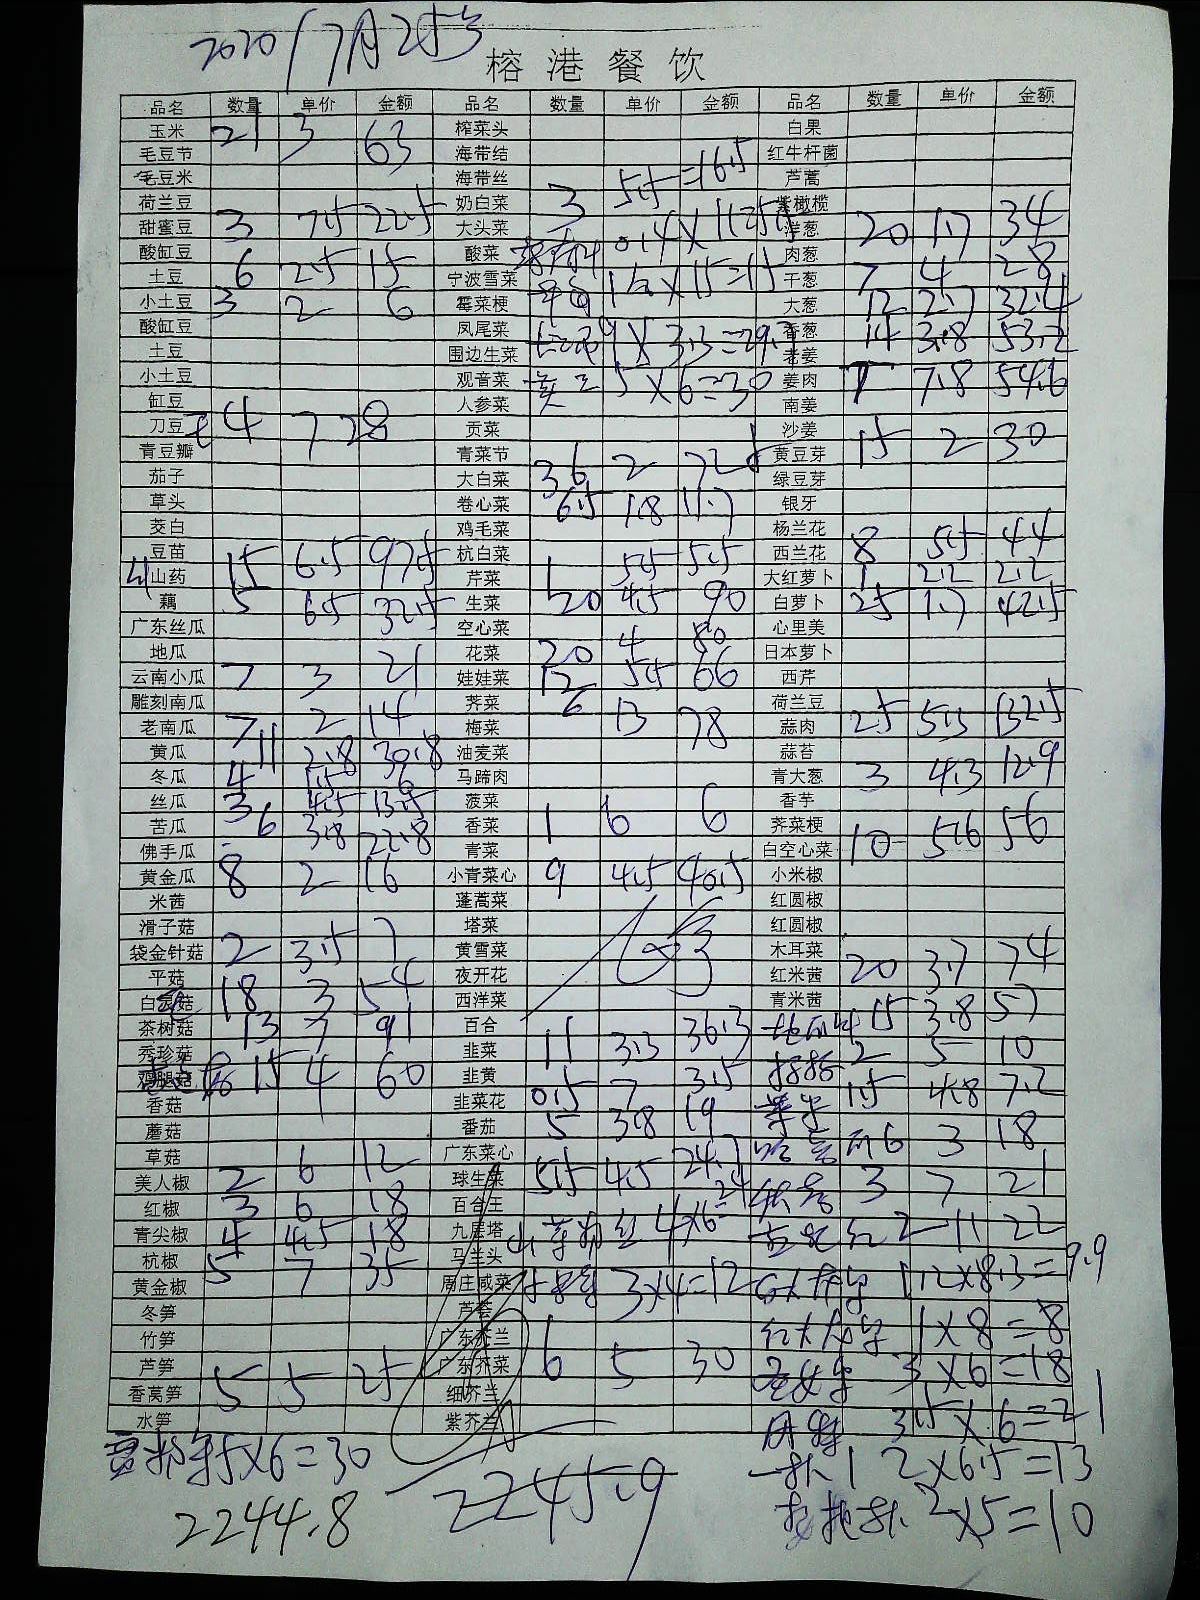 2020/7月25号
榕港餐饮
品名 数量 单价 金额 品名 数量 单价 金额 品名 数量 单价 金额
玉米 21 3 63 榨菜头 白果
毛豆节 海带结 红牛杆菌
毛豆米 海带丝 芦蒿
荷兰豆 奶白菜 3 5.5 =16.5 紫橄榄
甜蜜豆 3 7.5 22.5 大头菜 洋葱 20 1.7 34
酸缸豆 酸菜 肉葱
土豆 6 2.5 15 宁波雪菜 干葱 7 4 28
小土豆 3 2 6 霉菜梗 大葱 12 2.7 32.4
酸缸豆 凤尾菜 9 X 3.3=29.7 香葱 14 3.8 53.2
土豆 围边生菜 老姜
小土豆 观音菜 5 X 6=30 姜肉 7 7.8 54.6
缸豆 人参菜 南姜
刀豆 4 7 28 贡菜 沙姜
青豆瓣 青菜节 黄豆芽 15 2 30
茄子 大白菜 36 2 72 绿豆芽
草头 卷心菜 6.5 1.8 11.7 银牙
茭白 鸡毛菜 杨兰花
豆苗 15 6.5 97.5 杭白菜 西兰花 8 5.5 44
山药 芹菜 1 5.5 5.5 大红萝卜 1 2.2 2.2
藕 5 6.5 32.5 生菜 20 4.5 90 白萝卜 25 1.7 42.5
广东丝瓜 空心菜 心里美
地瓜 花菜 20 4 80 日本萝卜
云南小瓜 7 3 21 娃娃菜 12 5.5 66 西芹
雕刻南瓜 荠菜 6 13 78 荷兰豆
老南瓜 7 2 14 梅菜 蒜肉 25 5.3 132.5
黄瓜 11 2.8 30.8 油麦菜 蒜苔
冬瓜 4 1.5 6 马蹄肉 青大葱 3 4.3 12.9
丝瓜 3 4.5 13.5 菠菜 香芋
苦瓜 6 3.8 22.8 香菜 1 6 6 荠菜梗
佛手瓜 青菜 白空心菜 10 5.6 56
黄金瓜 8 2 16 小青菜心 9 4.5 40.5 小米椒
米茜 蓬蒿菜 红圆椒
滑子菇 塔菜 红圆椒
袋金针菇 2 3.5 7 黄雪菜 木耳菜
平菇 夜开花 红米茜 20 3.7 74
18 3 54 西洋菜 青米茜 15 3.8 57
茶树菇 13 7 91 百合
秀珍菇 韭菜 11 3.3 36.3 2 5 10
15 4 60 韭黄 1.5 4.8 7.2
香菇 韭菜花 0.5 7 3.5
蘑菇 番茄 5 3.8 19 6 3 18
草菇 广东菜心
美人椒 2 6 12 球生菜 5.5 4.5 24.7 3 7 21
红椒 3 6 18 百合王
青尖椒 4 4.5 18 九层塔 4X6=24 2 11 22
杭椒 5 7 35 马兰头
黄金椒 周庄咸菜 3X4=12 1.2X8.3=9.9
冬笋 芦荟
竹笋 广东芥兰 1X8=8
芦笋 5 5 25 广东芥菜 6 5 30 3X6=18
香莴笋 细芥兰
水笋 紫芥兰 3.5X6=21
5X6=30 2X6.5=13
2244.8 2245.9 2X5=10